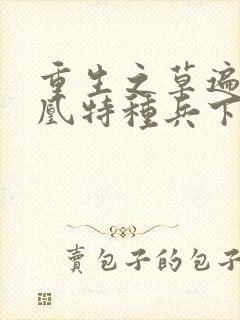 重生之草遍
凰特種兵下
賣包子的包子